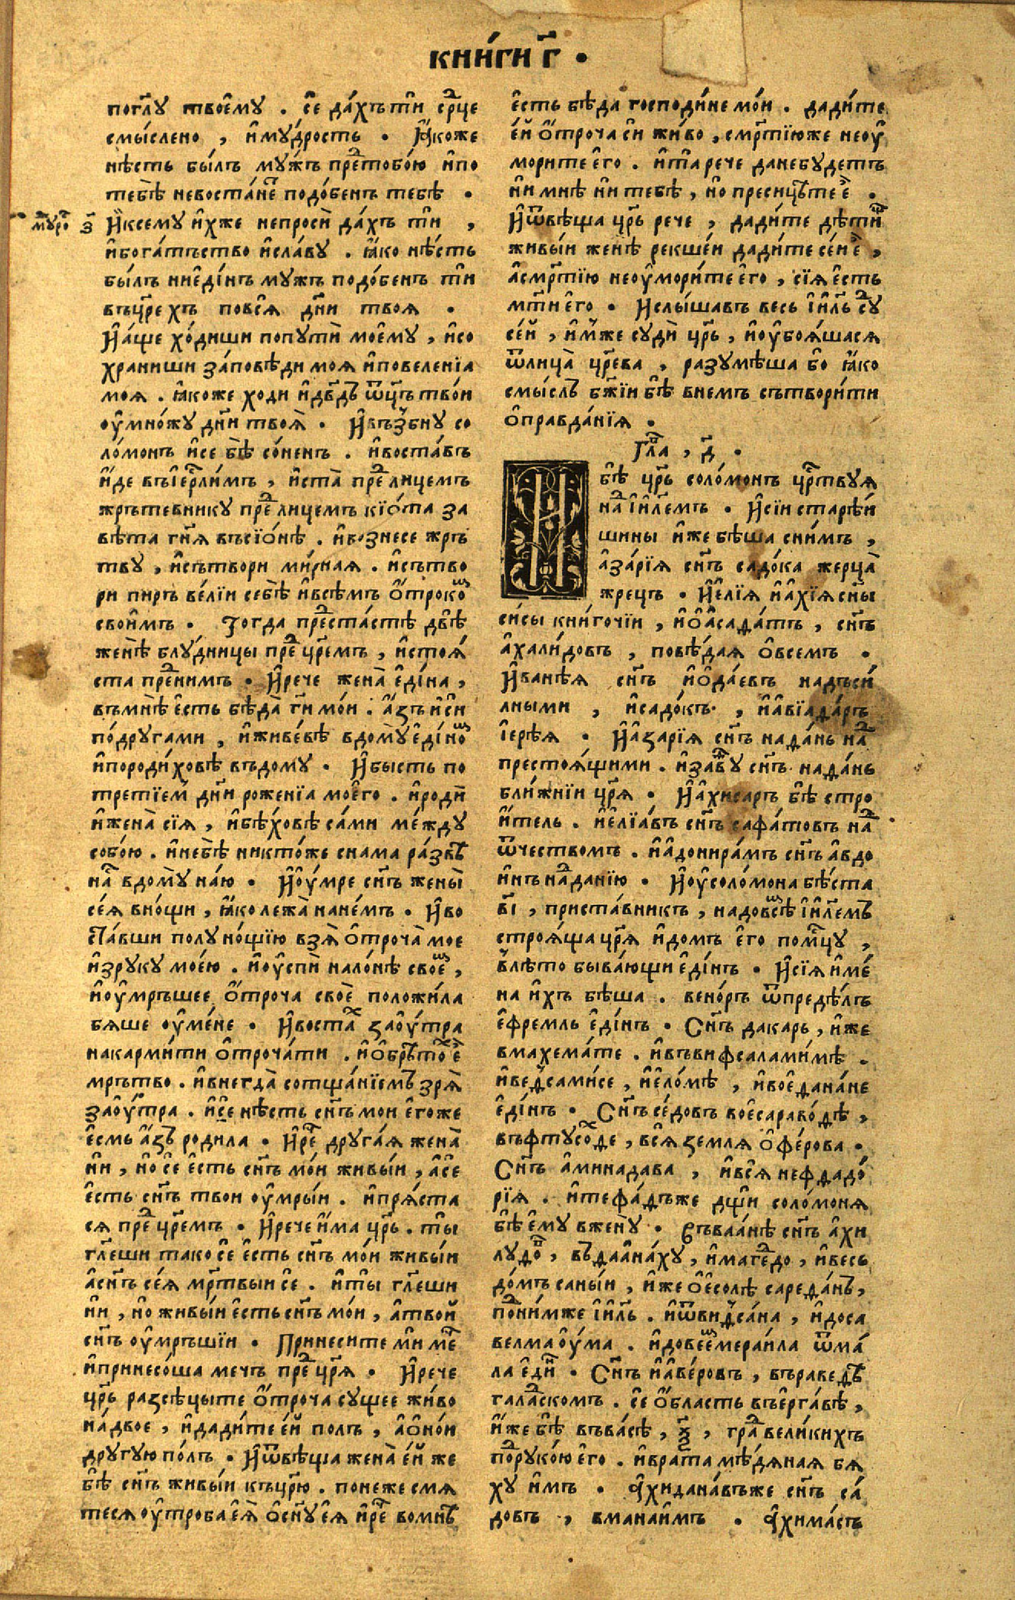 кни́ги г҃ .
погл҃у твоѐму . сѐ да́хъ ти ср҃це
смы́слено , и҆му́дрость . Ꙗ҆́коже
нѣ́сть бы́лъ му́жъ пре́ тобо́ю и҆по
тебѣ̀ невоста́не подо́бенъ тебѣ̀ .
И҆ксему и҆́хже непросѝ да́хъ тѝ ,
му́ро з҃
и҆бога́тьство и҆сла́ву . ꙗ҆́ко нѣ́сть
бы́лъ ниѐди́нъ мужъ подо́бенъ тѝ
въцр҃ехъ повсѧ̀ дн҃и твоѧ̀ .
И҆а́ще хо́диши попутѝ моѐму , и҆со
храниши за́повѣди моѧ и҆повелѐнїа
моѧ . ꙗ҆́коже ходи и҆дв҃дъ ѿц҃ъ тво́и
оу҆мно́жу дн҃и твоѧ̀ . И҆възбну со
ло́монъ и҆се бѣ̀ со́ненъ . и҆воста́въ
и҆́де въі҆ер҃лимъ , и҆ста̀ пре́ лицемъ
жрътевнику пре́ лицемъ кїо́та за
вѣта гн҃ѧ въсїо́нѣ . и҆вознесе жръ
тву , и҆сътвори ми́рнаѧ . и҆сътво
ри пиръ вѐлїи себѣ̀ и҆всѣ́мъ о҆́троко
свои҆́мъ . Тогда преста́стѣ двѣ̀
женѣ̀ блудницы пре́ цр҃емъ , и҆стоѧ́
ста пре́ нимъ . И҆рече жена̀ є҆ди́на ,
въмнѣ̀ є҆сть бѣда̀ гн҃и мо́и . а҆́зъ и҆си
по́другами , и҆живѐвѣ вдому є҆ди́но
и҆породи́ховѣ въдому . И҆бысть по
третїем дн҃и рожѐнїа моѐго . и҆родѝ
и҆жена̀ сїѧ , и҆бѣ́ховѣ са́ми ме́жду
собо́ю . и҆небѣ̀ никто́же снама ра́звѣ
на́ вдому на́ю . И҆оу҆́мре сн҃ъ жены̀
сеѧ̀ вно́щи , ꙗ҆́ко лежа̀ нане́мъ . И҆во
ста́вши полу но́щїю взѧ̀ о҆́троча̀ мое
и҆зруку мое́ю . и҆оу҆спѝ нало́нѣ своѐ ,
и҆оу҆мръшее о҆́троча своѐ положи́ла
бѧше оу҆ме́не . И҆воста́ заоу҆́тра
накарми́ти о҆троча́ти . и҆о҆брѣто́ є҆
мръ́тво . и҆внегда̀ сотща́нїемъ зрѧ̀
заоу҆́тра . и҆сѐ нѣ́сть сн҃ъ мои є҆го́же
є҆смь а҆́зъ роди́ла . И҆ре́ друга́ѧ жена̀
ни , но̀ сѐ є҆сть сн҃ъ мо́и живы́и , а҆сѐ
є҆сть сн҃ъ твои оу҆мры́и . и҆прѧ́ста
сѧ пре́ цр҃емъ . И҆рече и҆́ма цр҃ь . ты̀
гл҃еши тако сѐ є҆сть сн҃ъ мо́и живы́и
а҆сн҃ъ сеѧ̀ мр҃твыи сѐ . и҆ты̀ гл҃еши
ни , но̀ живы́и є҆сть сн҃ъ мо́и , а҆твой
сн҃ъ оу҆мръ́шїи . Принесите мѝ ме́
и҆принесо́ша мечъ пре́ цр҃ѧ . И҆рече
цр҃ь разсѣцы́те о҆́троча су́щее жи́во
на́двое , и҆дади́те е҆й по́лъ , а҆о҆но́и
другу́ю по́лъ . И҆ѿвѣща жена̀ е҆й же
бѣ̀ сн҃ъ живы́и къцр҃ю . поне́же смѧ
те́сѧ оу҆тро́ба є҆ѧ̀ о҆сн҃у є҆ѧ̀ и҆ре́ вомнѣ̀
є҆́сть бѣ́да господи́не мо́и . дади́те
е҆й о҆́троча сѝ жи́во , смр҃тїю же неоу҆
мори́те є҆го . и҆та̀ рече да́небудетъ
ни мнѣ ни тебѣ , но̀ пресицы́те є҆ .
И҆ѿвѣща цр҃ь рече , дади́те дѣ́ти
живы́и женѣ̀ рекше́и дади́те се́и є҆ ,
а҆смр҃тїю неоу҆мори́те є҆го , сїѧ є҆́сть
мт҃и є҆го . И҆слы́шавъ весь і҆и҃ль су
се́й , и҆́мже судѝ цр҃ь , и҆оу҆боѧ́шасѧ
ѿлица̀ цр҃ева , разумѣша бо ꙗ҆́ко
смы́слъ бж҃їи бѣ̀ внемъ сътвори́ти
о҆правда́нїѧ .
Гла́ , д҃ .
И бѣ̀ цр҃ь соло́монъ цр҃твуѧ
на́ і҆и҃лемъ . И҆сїи старѣ́и
шины и҆же бѣ́ша сни́мъ ,
а҆за́рїѧ сн҃ъ садо́ка жерца̀
жрецъ . И҆є҆лїѧ и҆а҆хїѧ сн҃ы
си́сы кни́гочїи , и҆о҆асада́тъ , сн҃ъ
а҆хали́довъ , повѣ́даѧ о҆всемъ .
И҆ванѣ́ѧ сн҃ъ и҆о҆да́евъ надъси́
лными , и҆садо́къ , и҆а҆вїада́ръ
і҆ерѣ́ѧ . И҆а҆за́рїѧ сн҃ъ на́да́нь на́
престоѧ́щими . и҆заву́ сн҃ъ на́да́нь
бли́жнїи цр҃ѧ . И҆а҆хиса́ръ бѣ̀ стро
и҆́тель . и҆є҆лїа́въ сн҃ъ сафа́товъ на́
ѿчествомъ . и҆а҆донира́мъ сн҃ъ а҆вдо
и҆нъ на́да́нїю . И҆оу҆соло́мона бѣ́ста
в҃і , приста́вникъ , надовсѣ̀ і҆и҃лемъ
строѧ́ща цр҃ѧ и҆до́мъ є҆го пом҃цу ,
влѣто быва́ющи є҆ди́нъ . И҆сїѧ и҆ме́
на и҆́хъ бѣ́ша . вено́ръ ѿпредѣ́лъ
є҆фре́мль є҆ди́нъ . Сн҃ъ дака́рь , и҆́же
вмахема́те . и҆въвифсалами́мѣ .
и҆ведсами́се , и҆є҆ло́мѣ , и҆воє҆дана́не
є҆ди́нъ . Сн҃ъ се́довъ воє҆сараво́дѣ ,
въфтусо́де , всѧ̀ землѧ̀ о҆фе́рова .
Сн҃ъ а҆минада́ва , и҆всѧ̀ нефдадо́
рїѧ . и҆тефа́дъже дщ҃и соло́монѧ
бѣ̀ є҆му вже́ну . Въваа́нѣ сн҃ъ а҆хи
лудо́ , въдаа҆на́ху , и҆маге́до , и҆весь
до́мъ саны́и , и҆́же о҆есолѣ̀ сареда́нъ ,
по́ни́мже і҆и҃ль . и҆ѿви́дса́на , и҆до́са
велмао҆у́ма . и҆довеємераи́ла ѿма́
ла є҆ди . Сн҃ъ и҆а҆ве́ровъ , въра́ведъ
гала́скомъ . сѐ о҆бласть въерга́вѣ ,
и҆́же бѣ̀ въва́сѣ , ѯ҃ , гра́ вели́кихъ
по́рукою є҆го . и҆врата мѣ́дѧнаѧ бѧ́
ху и҆мъ . А҆хидана́въже сн҃ъ са́
довъ , вманаи́мъ . А҆химасъ